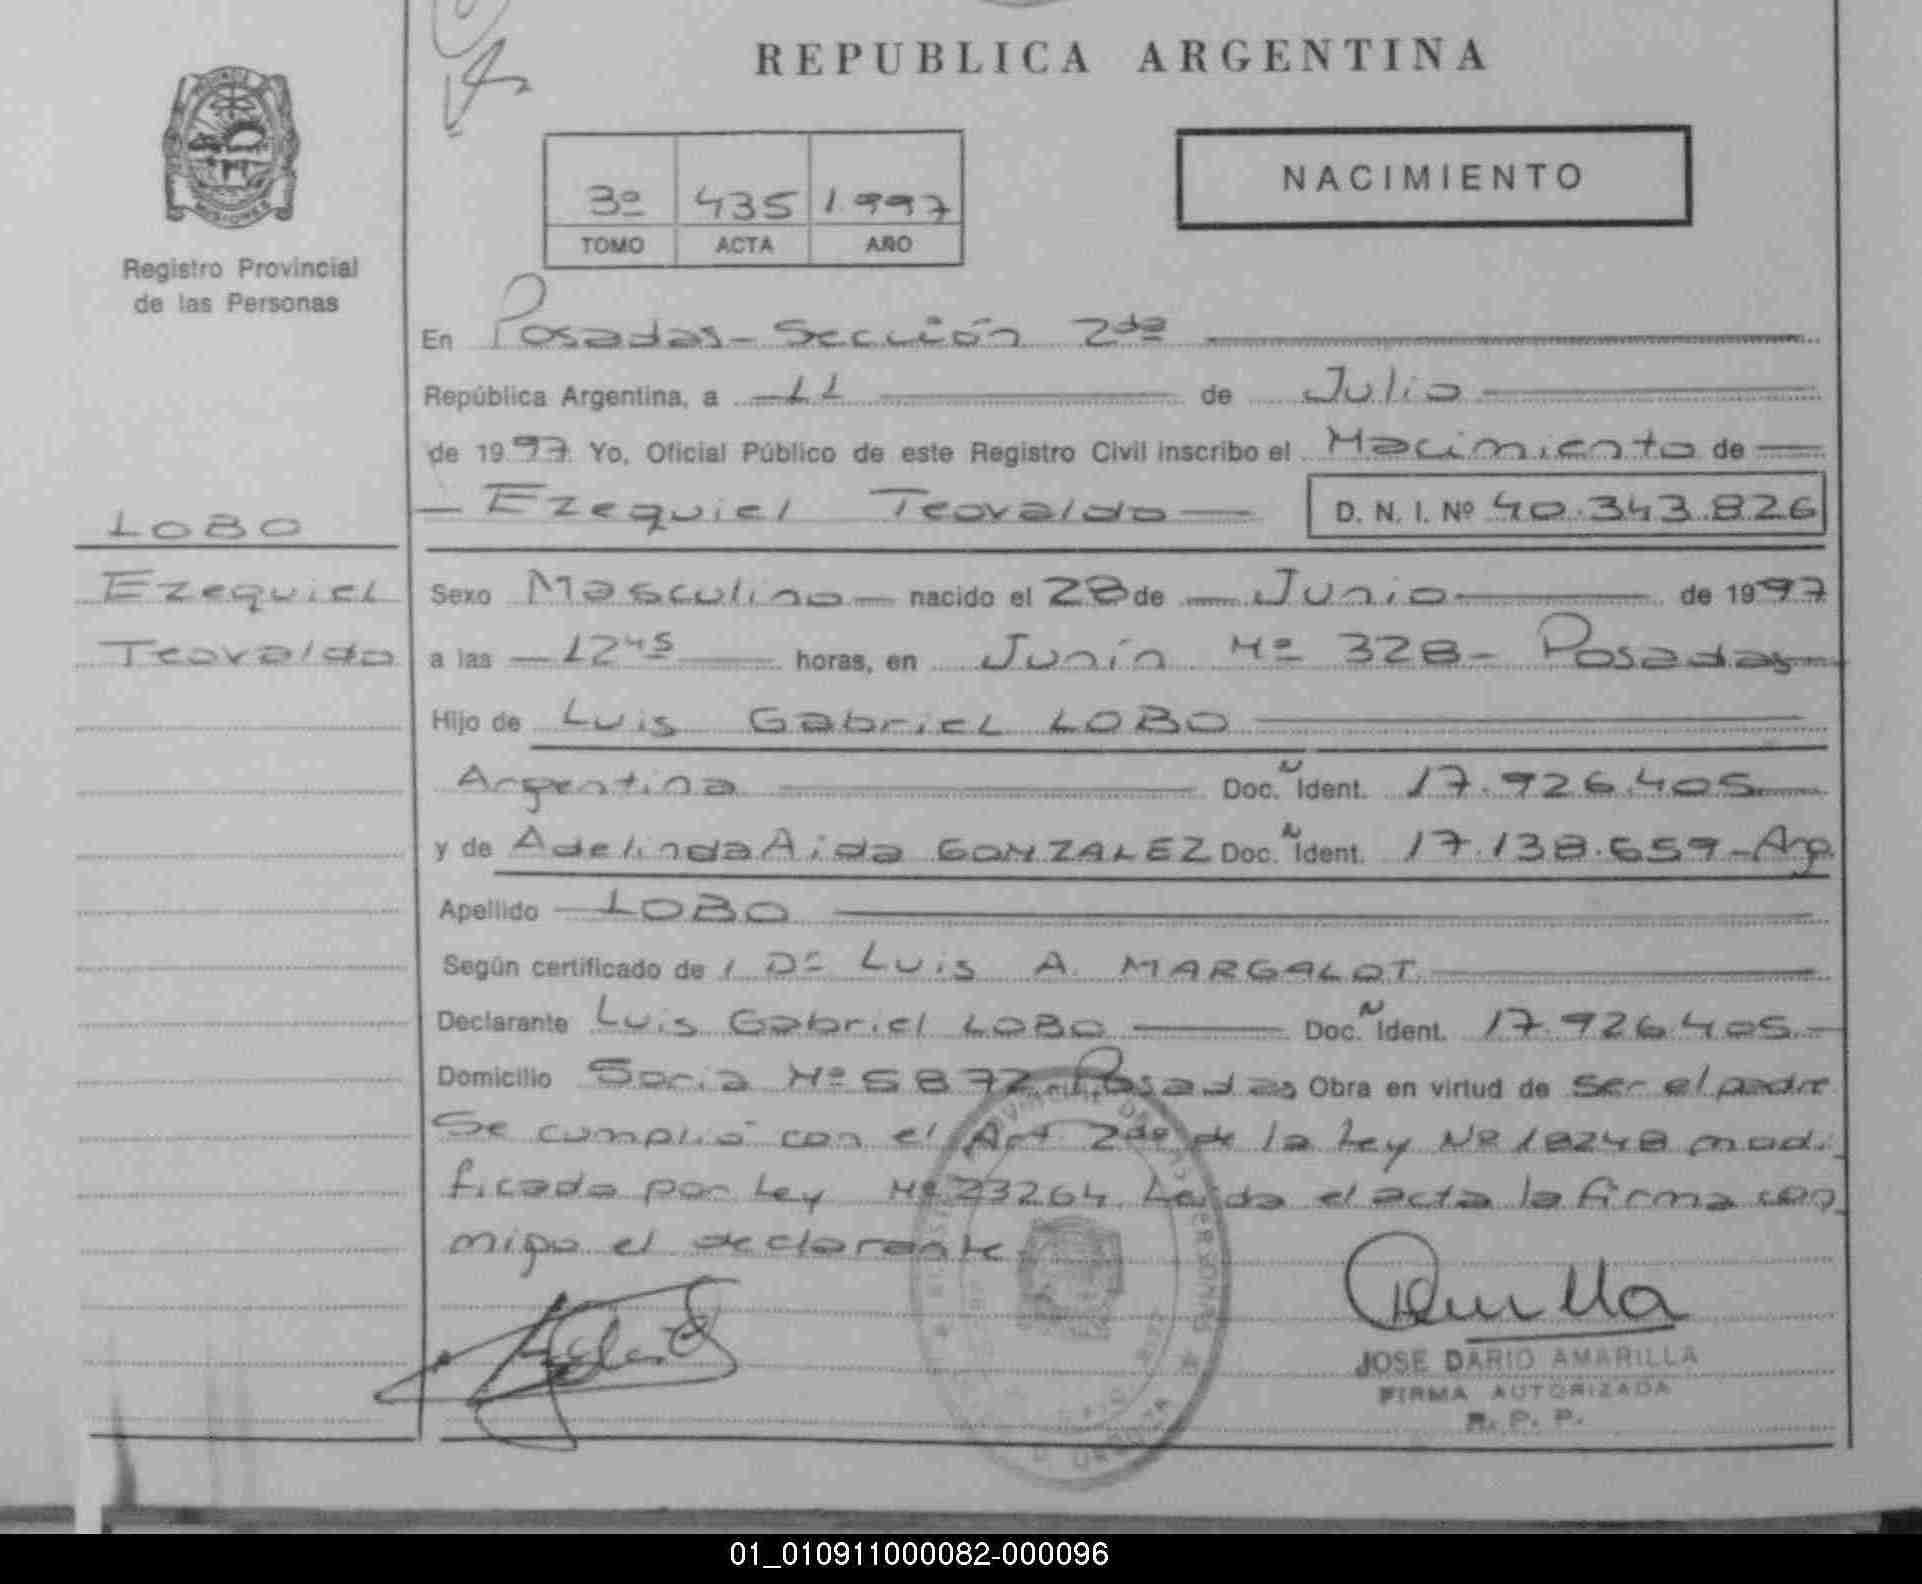 REPUBLICA ARGENTINA
MISIONES
Registro Provincial
de las Personas
3º 435 1.997
TOMO ACTA AÑO
NACIMIENTO
En Posadas - Sección 2da
República Argentina, a 11 de Julio
de 1997 Yo, Oficial Público de este Registro Civil inscribo el Nacimiento de
Ezequiel Teovaldo D. N. I. Nº 40.343.826
LOBO
Ezequiel
Teovaldo
Sexo Masculino nacido el 28 de Junio de 1997
a las 12 45 horas, en Junín Nº 328 - Posadas
Hijo de Luis Gabriel LOBO
Argentina Doc. Ñ Ident. 17.926.405
y de Adelinda Aida GONZALEZ Doc. Ñ Ident. 17.138.659 - Arg.
Apellido LOBO
Según certificado de / Dr Luis A. MARGALOT
Declarante Luis Gabriel LOBO Doc. Ñ Ident. 17.926.405
Domicilio Soria Nº 5872 Posadas Obra en virtud de ser el padre
Se cumplió con el Art 2do de la Ley Nº 18248 modi
ficada por Ley Nº 23264. Leida el acta la firma con
migo el declarante
JOSE DARIO AMARILLA
FIRMA AUTORIZADA
R. P. P.
01_010911000082-000096